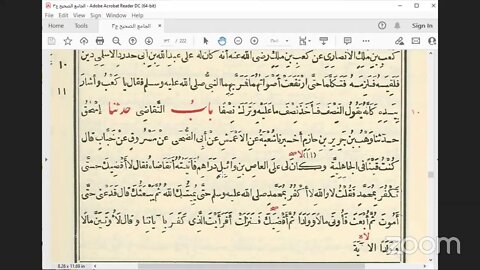 الجامع الصحيح ج٣ - Adobe Acrobat Reader DC (64-bit)
الجامع الصحيح ج٣
/ 222
كعب بن ملك الأنصاري عن كعب بن ملك رضى الله عنه أنه كان له على عبد الله بن أبي حدرد الأسلمي دين
١٠
فلقيه فلزمه فتكلما حتى ارتفعت أصواتهما فمر بهما النبي صلى الله عليه وسلم فقال يا كعب وأشار
١١
بيده كأنه يقول النصف فأخذ نصف ما عليه وترك نصفا باب التقاضي حدثنا إسحق
١٠
حدثنا وهب بن جرير بن حازم أخبرنا شعبة عن الأعمش عن أبي الضحى عن مسروق عن خباب قال
كنت قينا في الجاهلية وكان لي على العاص بن وائل دراهم فأتيته أتقاضاه فقال لا أقضيك حتى
تكفر بمحمد فقلت لا والله لا أكفر بمحمد صلى الله عليه وسلم حتى يميتك الله ثم يبعثك قال فدعني حتى
أموت ثم أبعث فأوتى مالا وولدا ثم أقضيك فنزلت أفرأيت الذي كفر بآياتنا وقال لأوتين مالا
وولدا الآية
8.26 x 11.69 in
zoom